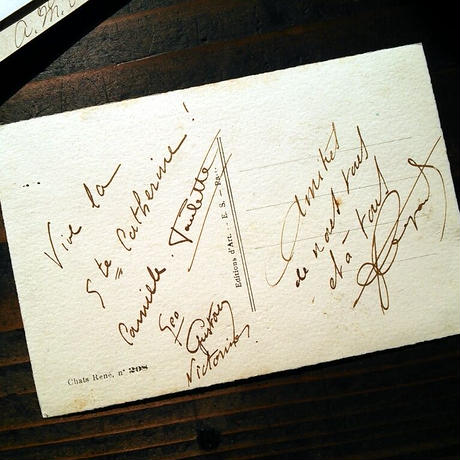 a. M.
Vive la
Ste Catherine !
Camille. Paulette
Geo
Gustave
Victorine
Chats René, n° 208
Editions d'Art. :: E. S. - Pa...
Amitiés
de nous tous
et à tous